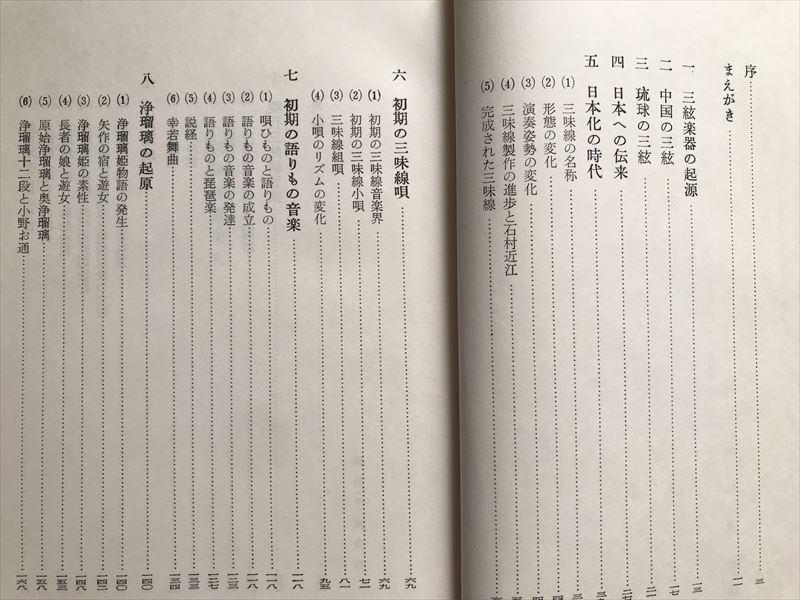 序 三
まえがき 一一
一 三絃楽器の起源 一三
二 中国の三絃 一七
三 琉球の三絃 二一
四 日本への伝来 二七
五 日本化の時代
(1) 三味線の名称
(2) 形態の変化
(3) 演奏姿勢の変化
(4) 三味線製作の進歩と石村近江
(5) 完成された三味線
六 初期の三味線唄 六九
(1) 初期の三味線音楽界 六九
(2) 初期の三味線小唄 七一
(3) 三味線組唄 八一
(4) 小唄のリズムの変化 九五
七 初期の語りもの音楽 一一八
(1) 唄ひものと語りもの 一一八
(2) 語りもの音楽の成立 一一八
(3) 語りもの音楽の発達 一二三
(4) 語りものと琵琶楽 一二七
(5) 説経 一三三
(6) 幸若舞曲 一三四
八 浄瑠璃の起原 一四〇
(1) 浄瑠璃姫物語の発生 一四〇
(2) 矢作の宿と遊女 一四二
(3) 浄瑠璃姫の素性 一四八
(4) 長者の娘と遊女 一五三
(5) 原始浄瑠璃と奥浄瑠璃 一五八
(6) 浄瑠璃十二段と小野お通 一六八